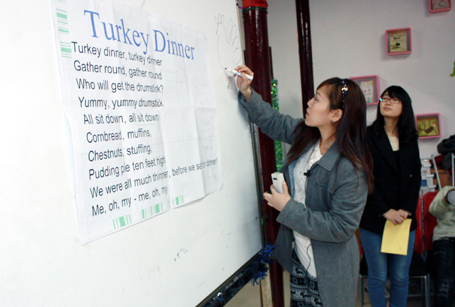 Turkey Dinner
Turkey dinner, turkey dinner
Gather round, gather round
Who will get the drumstick?
Yummy, yummy drumstick
All sit down, all sit down
Cornbread, muffins,
Chestnuts, stuffing,
Pudding pie ten feet high
We were all much thinner, before we sat to dinner!
Me, oh, my - me, oh, my